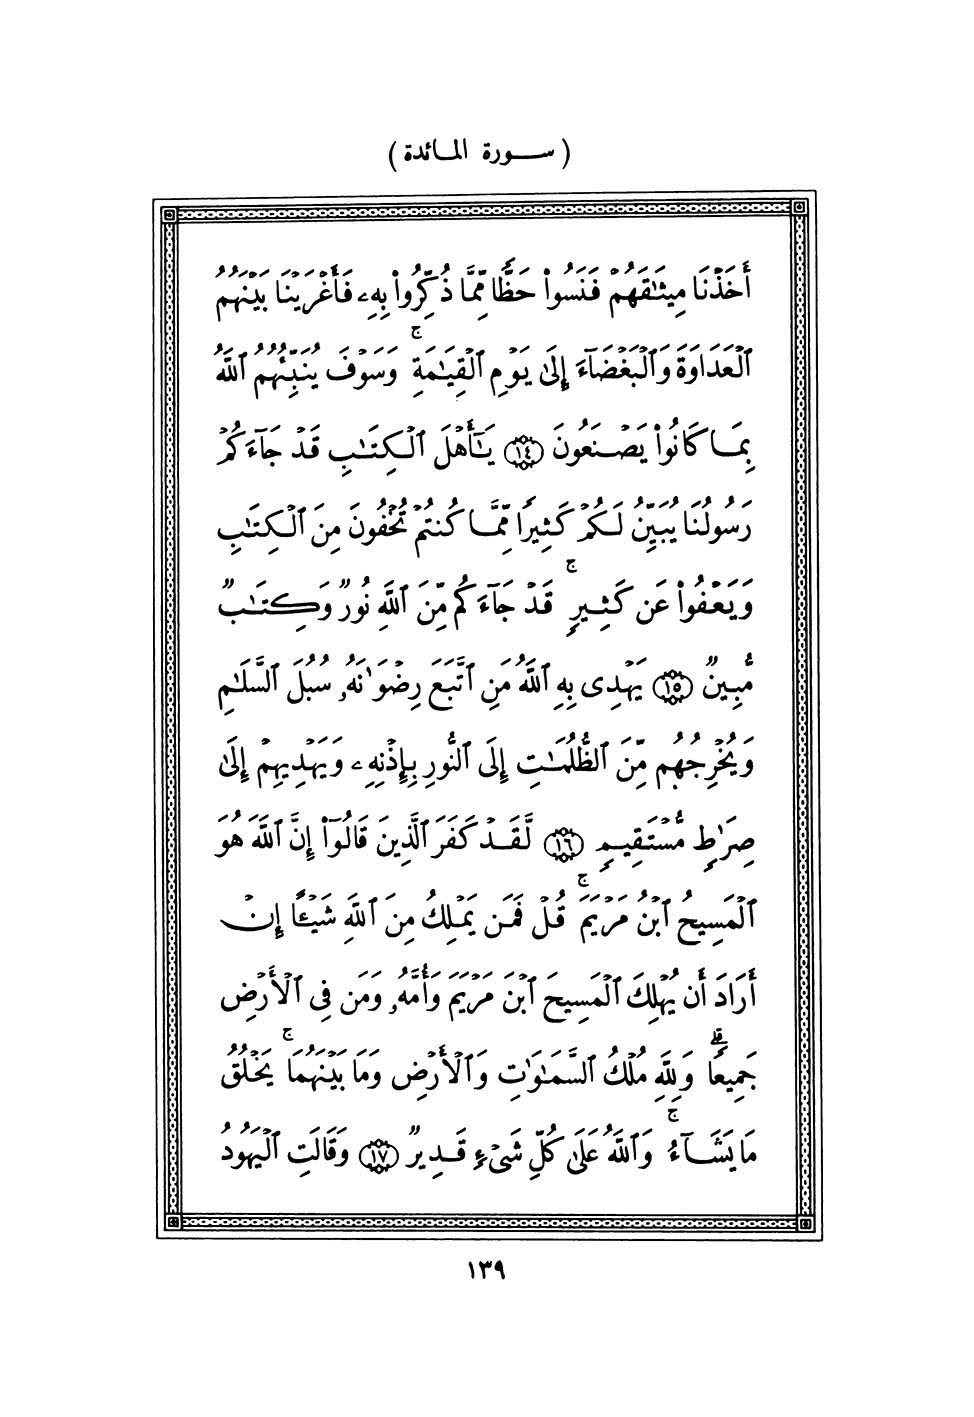 ( ســورة المـائدة )
أَخَذْنَا مِيثَٰقَهُمْ فَنَسُوا۟ حَظًّا مِّمَّا ذُكِّرُوا۟ بِهِۦ فَأَغْرَيْنَا بَيْنَهُمُ
ٱلْعَدَاوَةَ وَٱلْبَغْضَآءَ إِلَىٰ يَوْمِ ٱلْقِيَٰمَةِ ۚ وَسَوْفَ يُنَبِّئُهُمُ ٱللَّهُ
بِمَا كَانُوا۟ يَصْنَعُونَ ١٤ يَٰٓأَهْلَ ٱلْكِتَٰبِ قَدْ جَآءَكُمْ
رَسُولُنَا يُبَيِّنُ لَكُمْ كَثِيرًا مِّمَّا كُنتُمْ تُخْفُونَ مِنَ ٱلْكِتَٰبِ
وَيَعْفُوا۟ عَن كَثِيرٍ ۚ قَدْ جَآءَكُم مِّنَ ٱللَّهِ نُورٌ وَكِتَٰبٌ
مُّبِينٌ ١٥ يَهْدِى بِهِ ٱللَّهُ مَنِ ٱتَّبَعَ رِضْوَٰنَهُۥ سُبُلَ ٱلسَّلَٰمِ
وَيُخْرِجُهُم مِّنَ ٱلظُّلُمَٰتِ إِلَى ٱلنُّورِ بِإِذْنِهِۦ وَيَهْدِيهِمْ إِلَىٰ
صِرَٰطٍ مُّسْتَقِيمٍ ١٦ لَّقَدْ كَفَرَ ٱلَّذِينَ قَالُوٓا۟ إِنَّ ٱللَّهَ هُوَ
ٱلْمَسِيحُ ٱبْنُ مَرْيَمَ ۚ قُلْ فَمَن يَمْلِكُ مِنَ ٱللَّهِ شَيْـًٔا إِنْ
أَرَادَ أَن يُهْلِكَ ٱلْمَسِيحَ ٱبْنَ مَرْيَمَ وَأُمَّهُۥ وَمَن فِى ٱلْأَرْضِ
جَمِيعًا ۗ وَلِلَّهِ مُلْكُ ٱلسَّمَٰوَٰتِ وَٱلْأَرْضِ وَمَا بَيْنَهُمَا ۚ يَخْلُقُ
مَا يَشَآءُ ۚ وَٱللَّهُ عَلَىٰ كُلِّ شَىْءٍ قَدِيرٌ ١٧ وَقَالَتِ ٱلْيَهُودُ
١٣٩